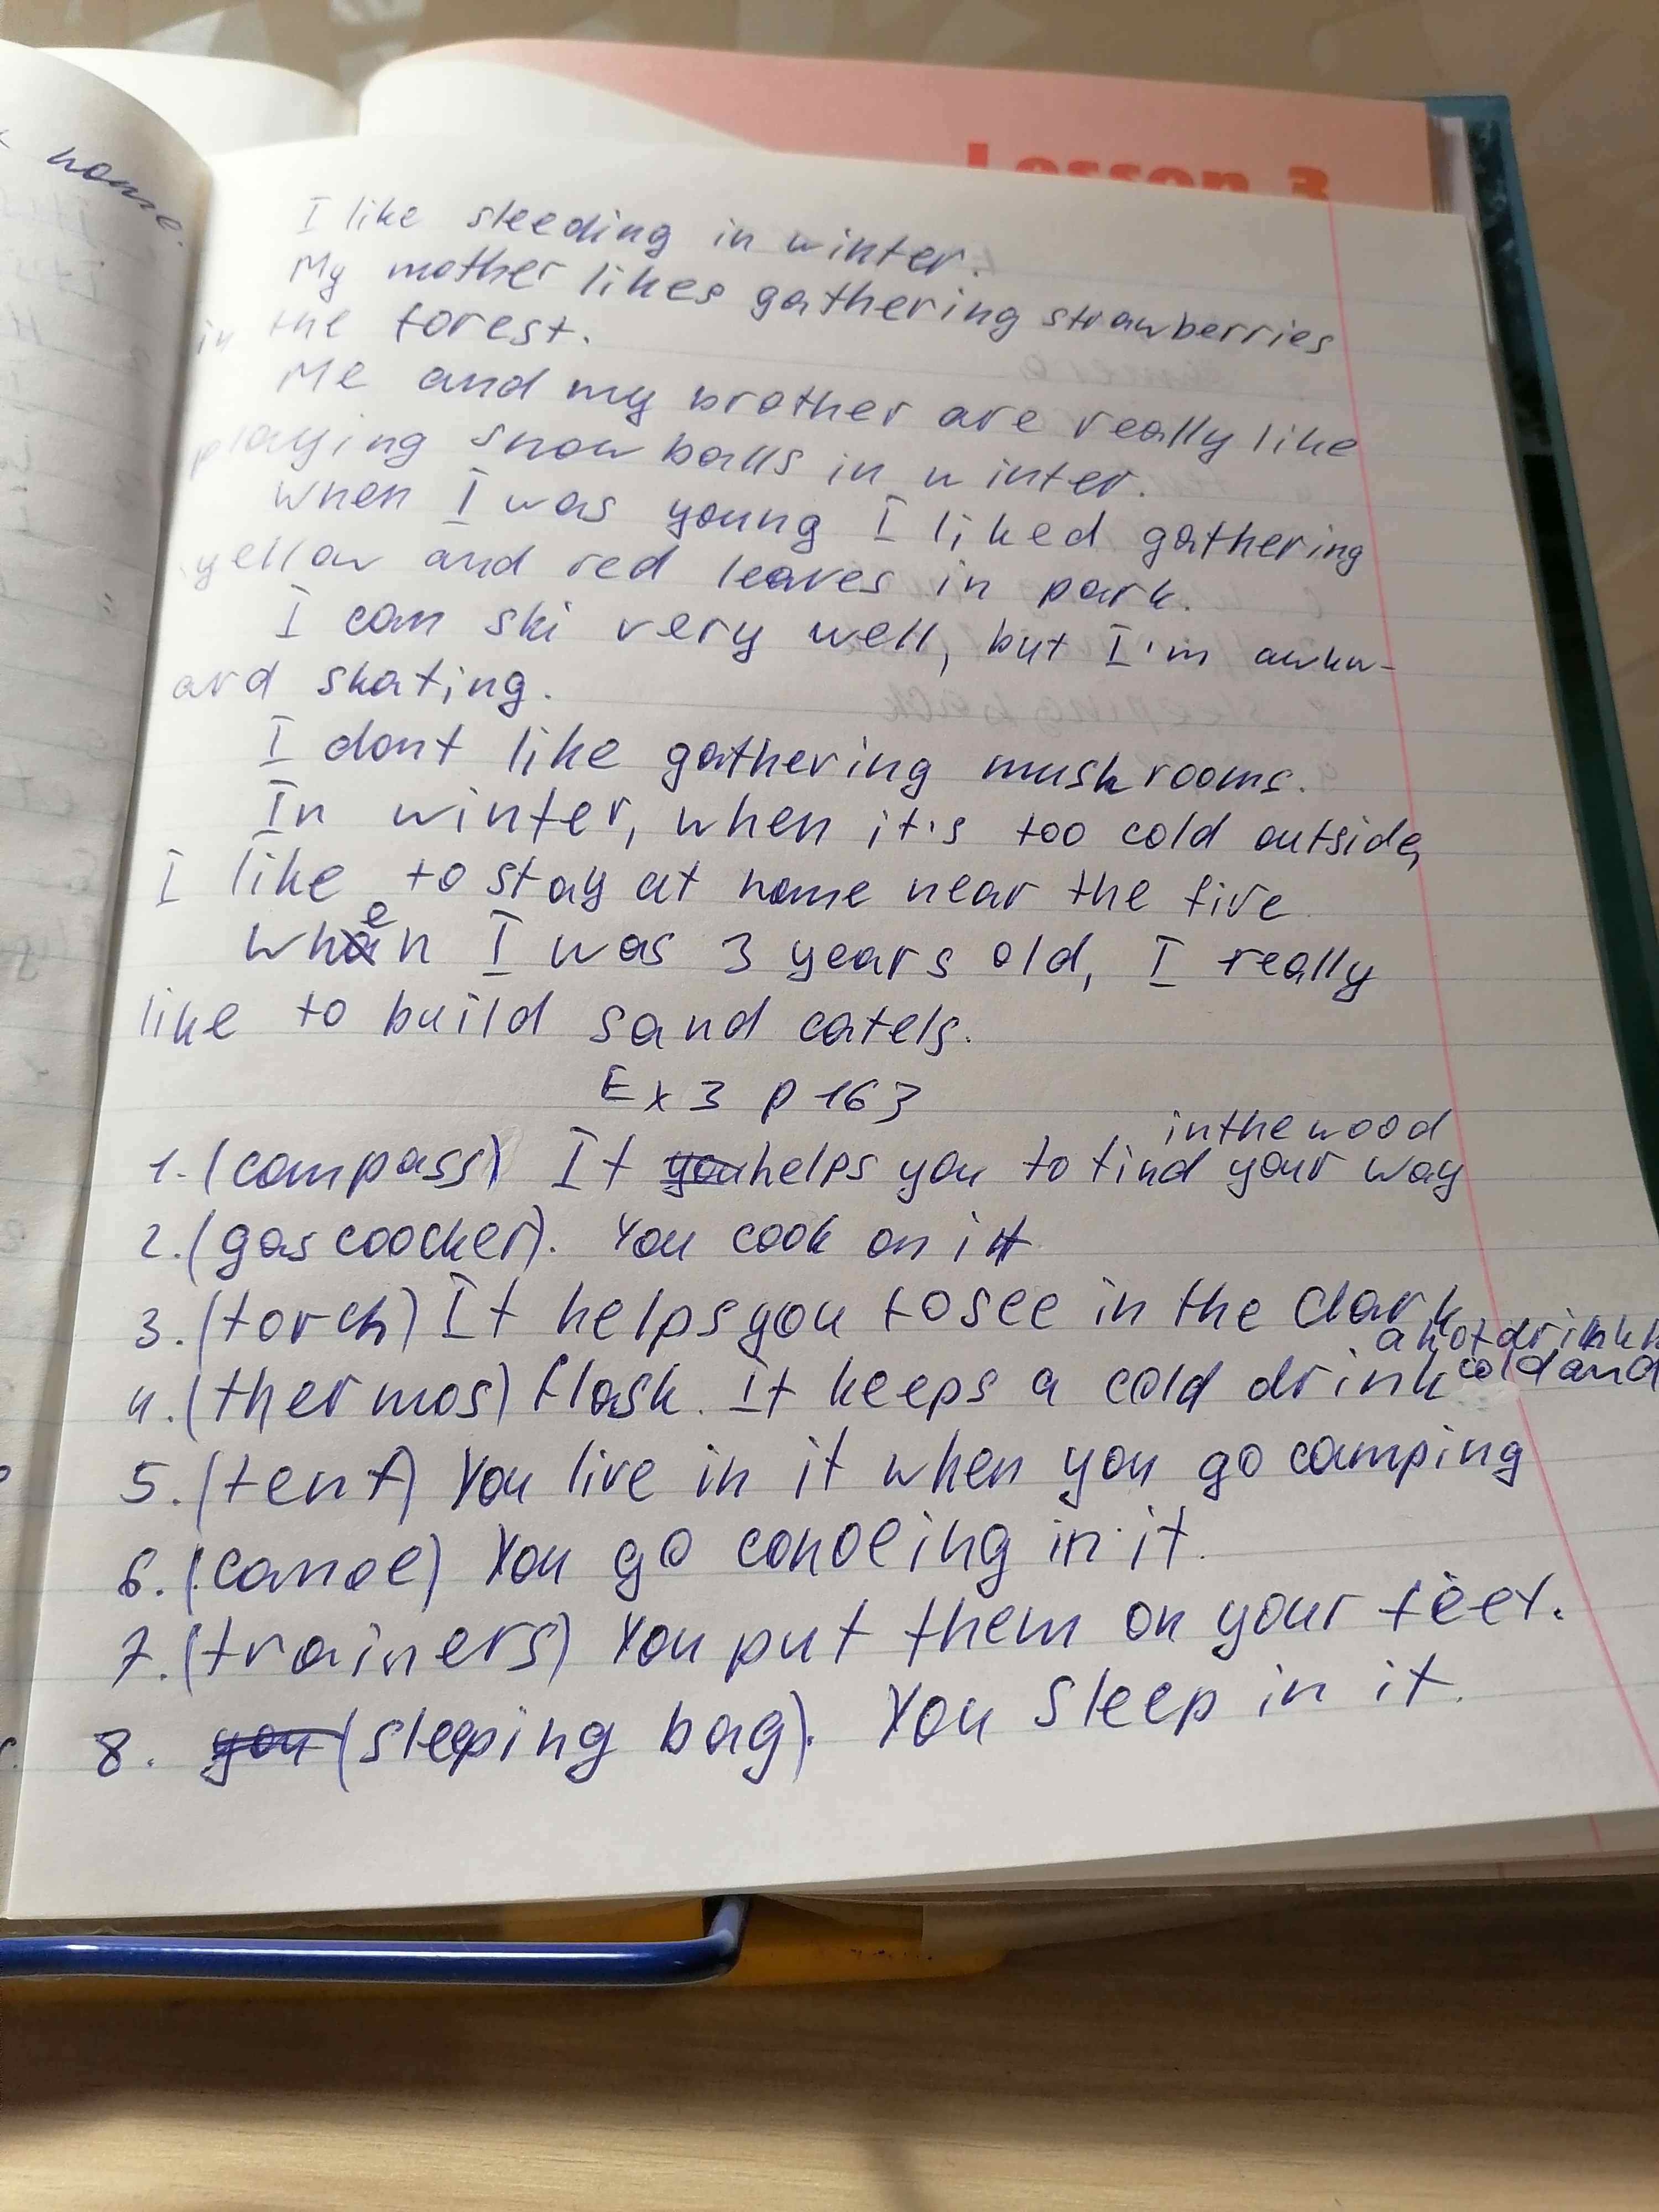 home.
Lesson 3
I like sleeding in winter.
My mother likes gathering strawberries
in the forest.
Me and my brother are really like
playing snow balls in winter.
When I was young I liked gathering
yellow and red leaves in park.
I can ski very well, but I'm awkw-
ard skating.
I dont like gathering mushrooms.
In winter, when it's too cold outside,
I like to stay at home near the fire
When I was 3 years old, I really
like to build sand catels.
Ex 3 p 163
in the wood
1. (compass) It you helps you to find your way
2. (gas coocker). You cook on it
3. (torch) It helps you to see in the dark
a hot drink h
4. (thermos) flask. It keeps a cold drink cold and
5. (tent) You live in it when you go camping
6. (canoe) You go conoeing in it.
7. (trainers) You put them on your feet.
8. you (sleeping bag). You sleep in it.